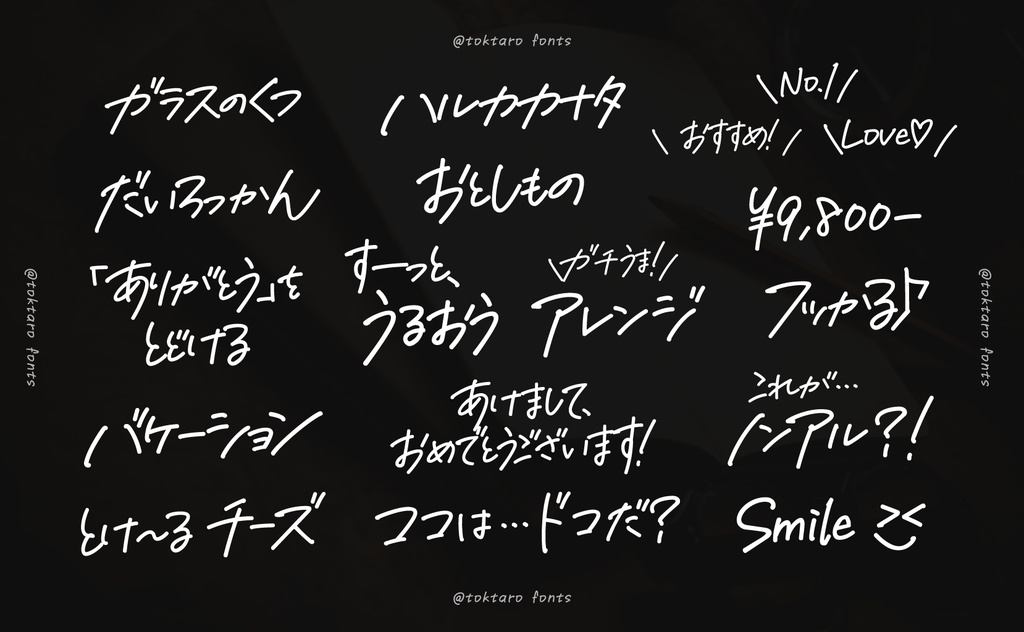 @toktaro fonts
ガラスのくつ
だいろっかん
「ありがとう」を
とどける
バケーション
とけ〜る チーズ
ハルカカナタ
おとしもの
すーっと、
うるおう
\ガチうま!/
アレンジ
あけまして、
おめでとうございます!
ココは…ドコだ?
\No.1/
\おすすめ!/ \Love♡/
¥9,800ー
フッかる♪
これが…
ノンアル?!
Smile ><
@toktaro fonts
@toktaro fonts
@toktaro fonts